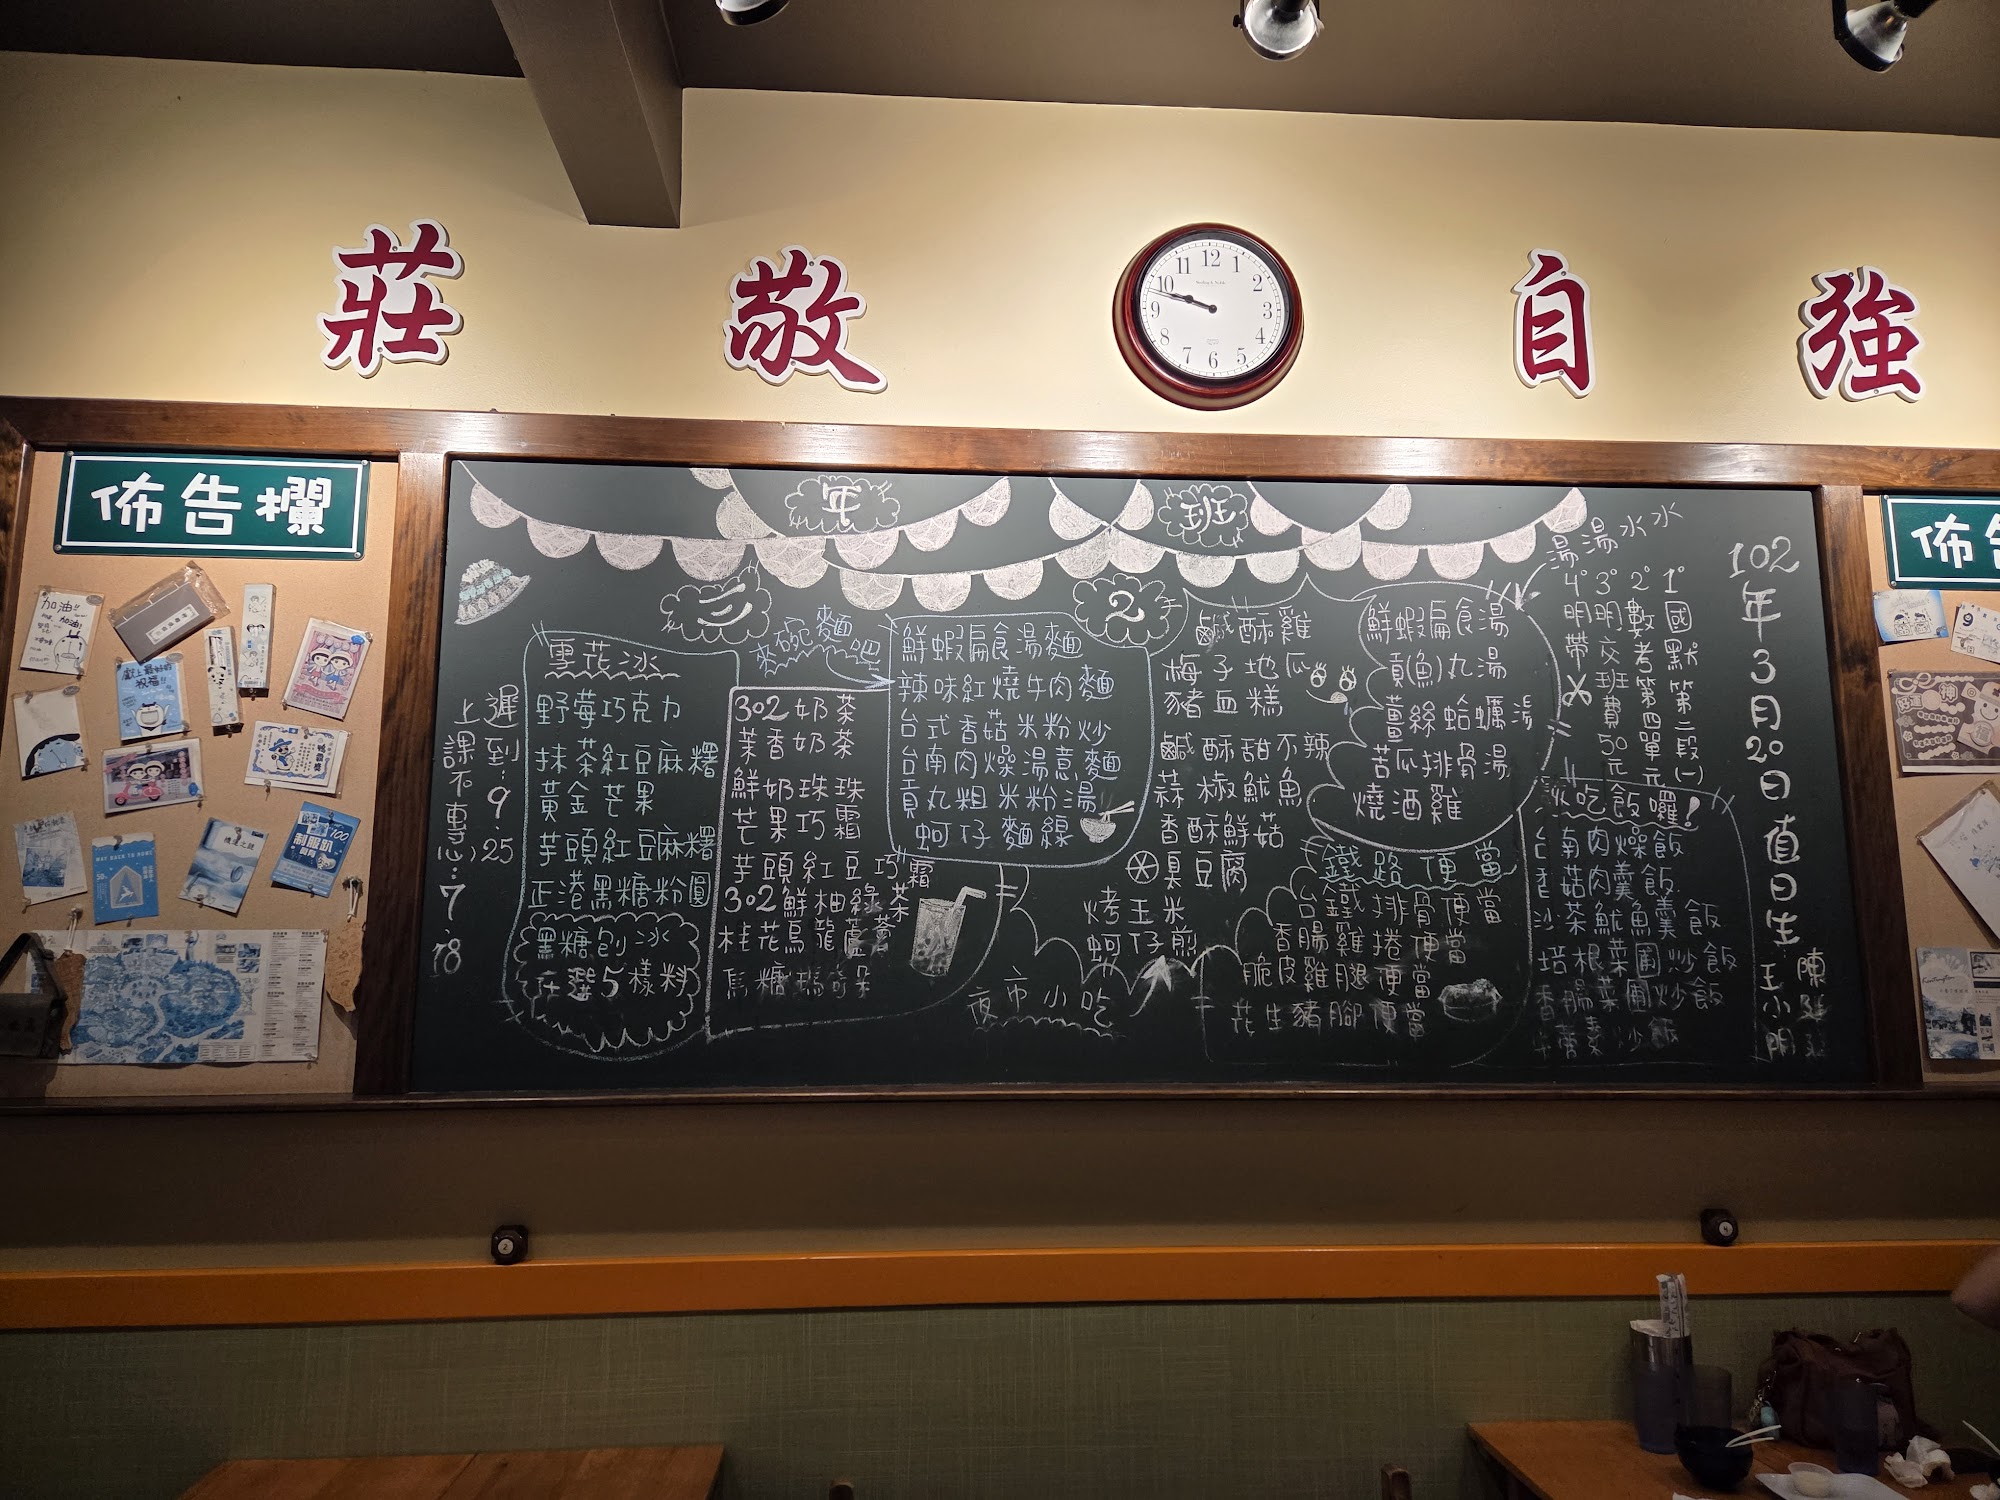 莊敬自強
佈告欄
佈告
12
1
2
3
4
5
6
7
8
9
10
11
加油!!
加油!
祝福!!
100
制服趴
9
三年2班
102年3月20日值日生
陳
王小明
1°國默第二段(一)
2°數考第四單元
3°明交班費50元
4°明帶
湯湯水水
鮮蝦扁食湯
貢(魚)丸湯
薑絲蛤蠣湯
苦瓜排骨湯
燒酒雞
吃飯囉!
台南肉燥飯
香菇肉羹飯
沙茶魷魚羹飯
培根菜圃炒飯
香腸菜圃炒飯
鐵路便當
台鐵排骨便當
香腸雞捲便當
脆皮雞腿便當
花生豬腳便當
鹹酥雞
梅子地瓜
豬血糕
鹹酥甜不辣
蒜椒魷魚
香酥鮮菇
臭豆腐
烤玉米
蚵仔煎
夜市小吃
來碗麵吧
鮮蝦扁食湯麵
辣味紅燒牛肉麵
台式香菇米粉炒
台南肉燥湯意麵
貢丸粗米粉湯
蚵仔麵線
302奶茶
茉香奶茶
鮮奶珍珠
芒果巧霜
芋頭紅豆巧霜
302鮮柚綠茶
桂花烏龍蘆薈
雪花冰
野莓巧克力
抹茶紅豆麻糬
黃金芒果
芋頭紅豆麻糬
正港黑糖粉圓
黑糖刨冰
任選5樣料
遲到:9.25
上課不專心:7.18
2
4